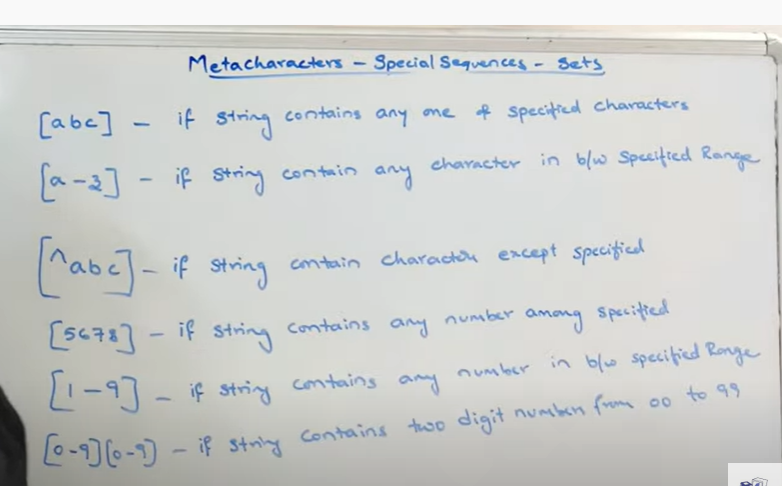 Metacharacters - Special Sequences - Sets
[abc] - if string contains any one of specified characters
[a-z] - if string contain any character in b/w Specified Range
[^abc] - if string contain character except specified
[5678] - if string contains any number among specified
[1-9] - if string contains any number in b/w specified Range
[0-9][0-9] - if string contains two digit number from 00 to 99